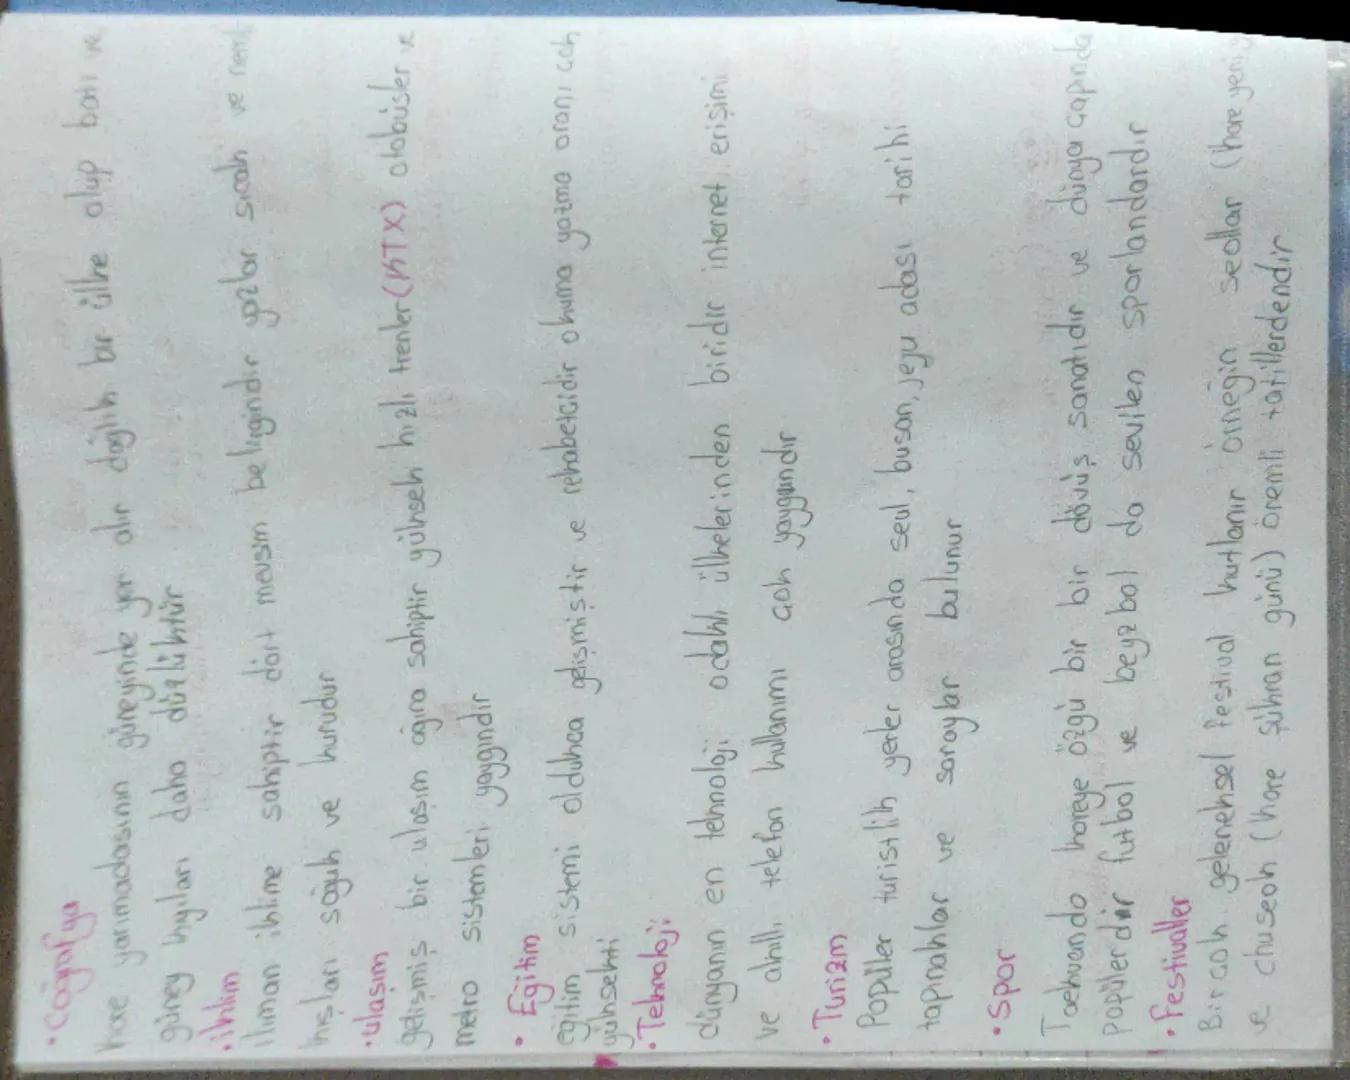 • Coğrafya
kore yarımadasının güneyinde yer alır dağlık bir ülke olup batı ve
güney kıyıları daha düzlüktür
• iklim
ılıman iklime sahiptir dört mevsim belirgindir yazlar sıcak ve nemli
kışları soğuk ve kurudur
• ulaşım
gelişmiş bir ulaşım ağına sahiptir yüksek hızlı trenler (KTX) otobüsler ve
metro sistemleri yaygındır
• Eğitim
eğitim sistemi oldukca gelişmiştir ve rekabetcidir okuma yazma oranı cok
yüksekti
• Teknoloji
dünyanın en teknoloji odaklı ülkelerinden biridir internet erişimi
ve akıllı telefon kullanımı cok yaygındır
• Turizm
Popüller turistlik yerler arasında seul, busan, jeju adası tarihi
tapınaklar ve saraylar bulunur
• Spor
Taekwando koreye özgü bir bir dövüş sanatıdır ve dünya capında
popülerdir futbol ve beyzbol da sevilen sporlandandır
• Festivaller
Bir cok geleneksel festival kutlanır örneğin seollar (kore yeni
ve chuseok (kore şükran günü) önemli tatillerdendir